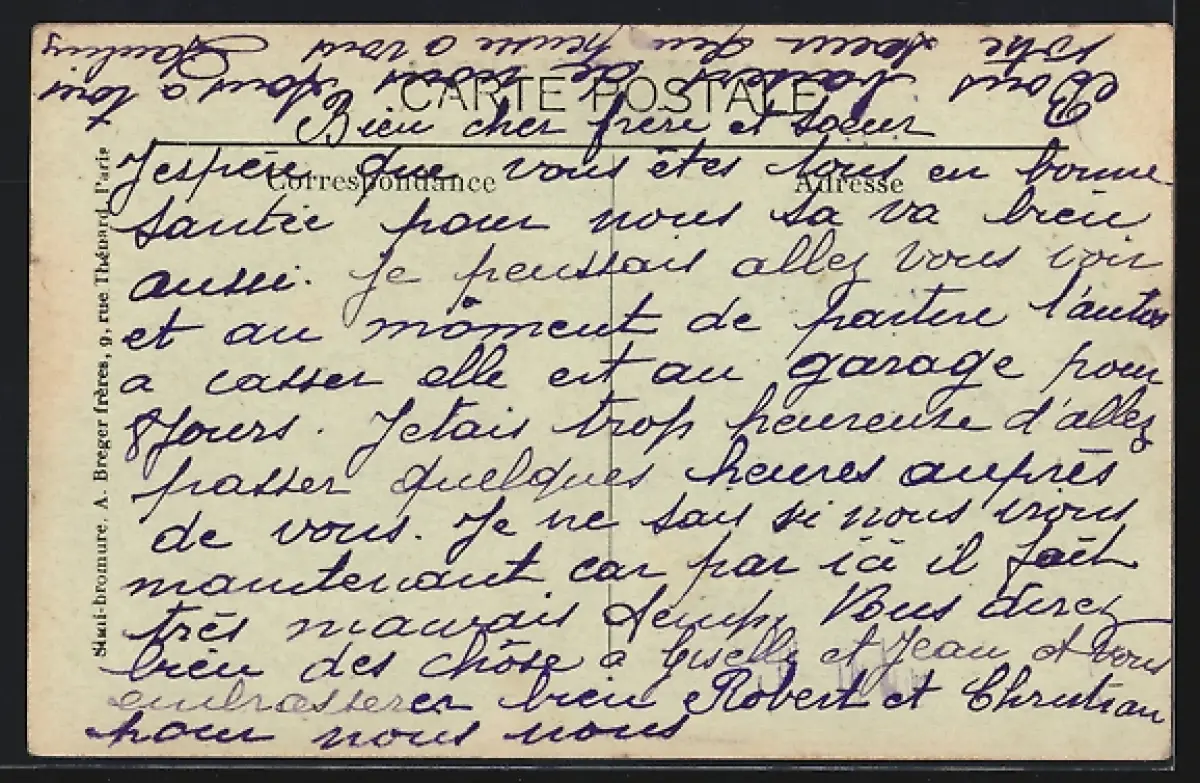 CARTE POSTALE
Bien cher frère et Soeur
Correspondance
Adresse
Jespère que vous êtes tous en bonne
santée pour nous sa va bien
aussi. Je penssais allez vous voir
et au môment de partire l'autos
a casser elle est au garage pour
8 Jours. Jetais trop heureuse d'allez
passer quelques heures auprès
de vous. Je ne sais si nous irons
maintenant car par içi il fait
très mauvais temps Vous direz
bien des chôse a Giselle et Jean et vous
embrasserer bien Robert et Christian
pour nous nous
Bons baisers de nous tous a tous
votre soeur qui pense a vous
Simili-bromure. A. Breger frères, 9, rue Thénard, Paris